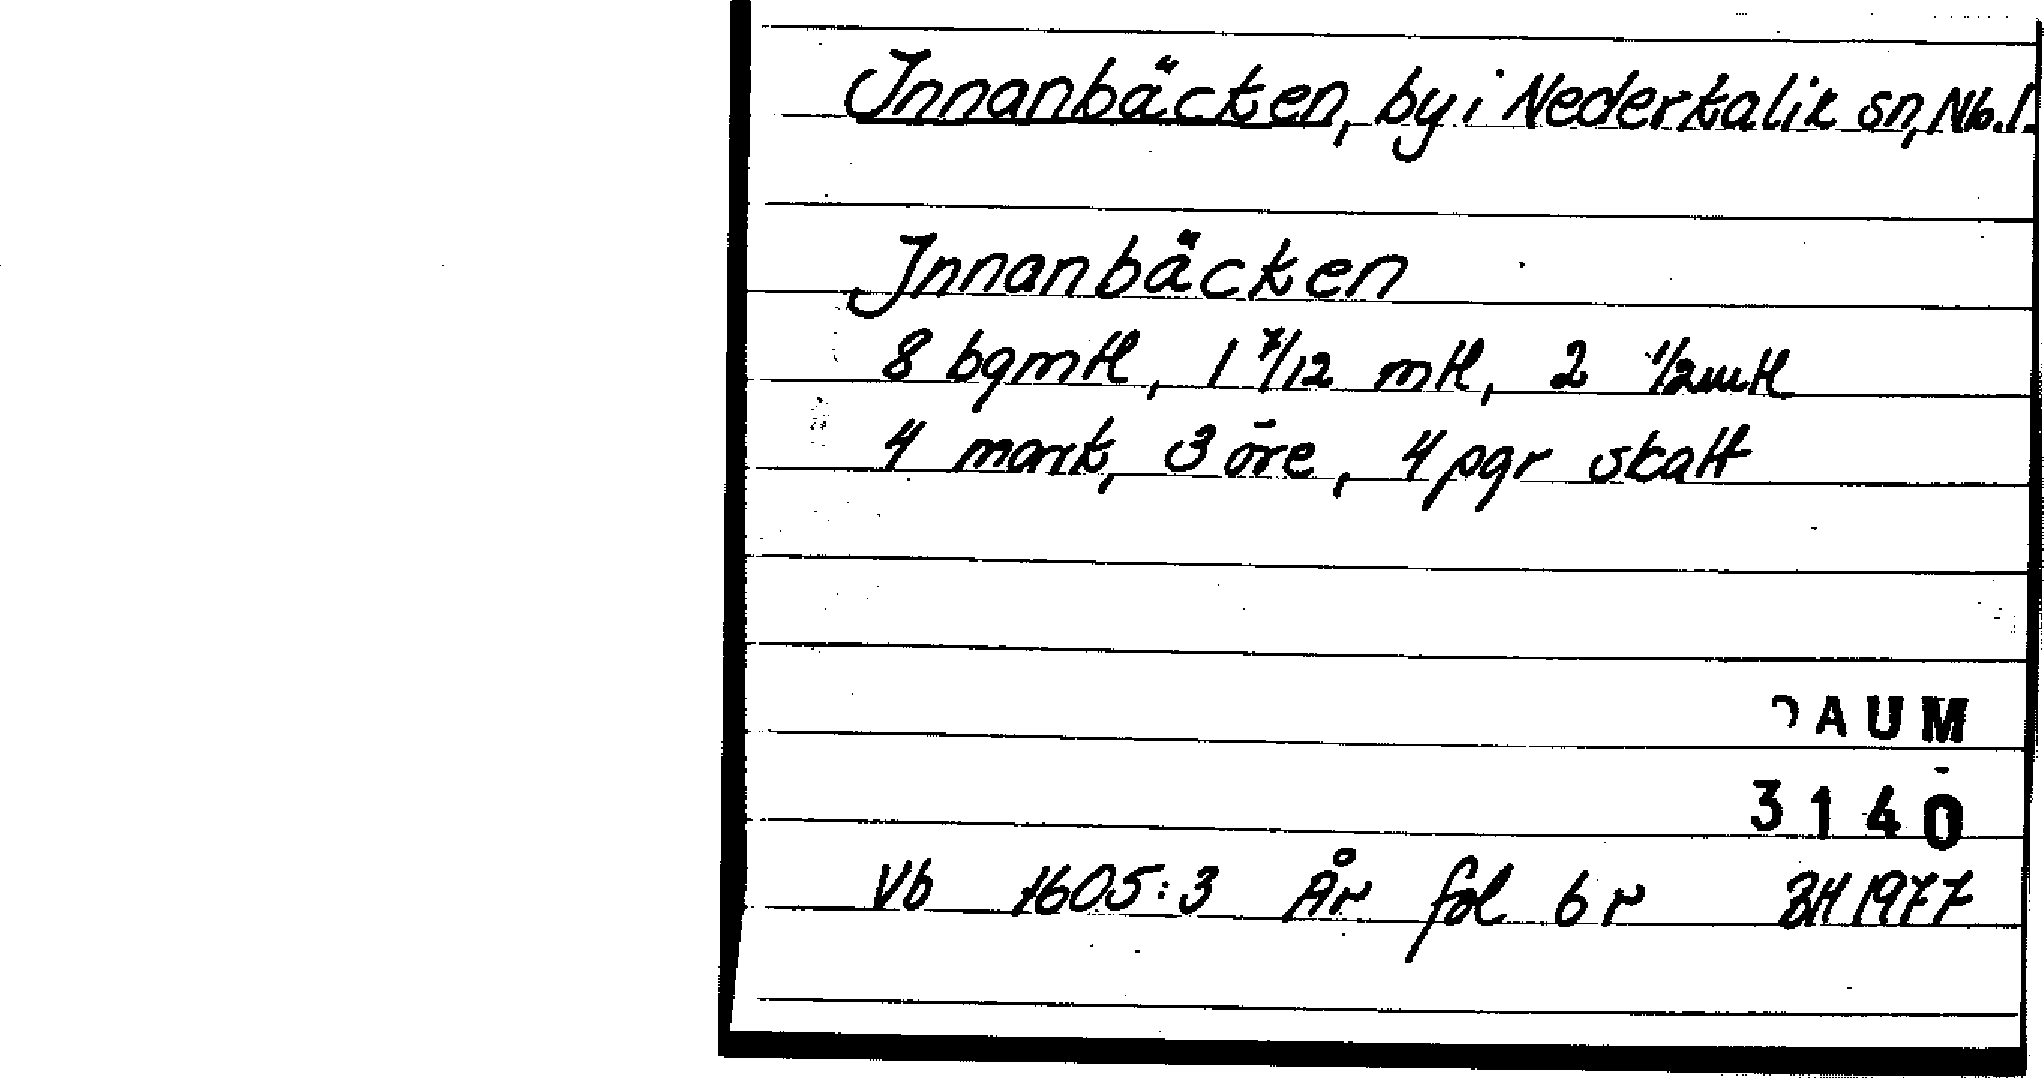 Innanbäcken, by i Nederkalix sn, Nb.l.
Innanbäcken
8 bgmtl, 1 7/12 mtl, 2 1/2 mtl
4 mark, 3 öre, 4 pgr skatt
DAUM
3140
Vb 1605:3 År fol 6 r BH 1977